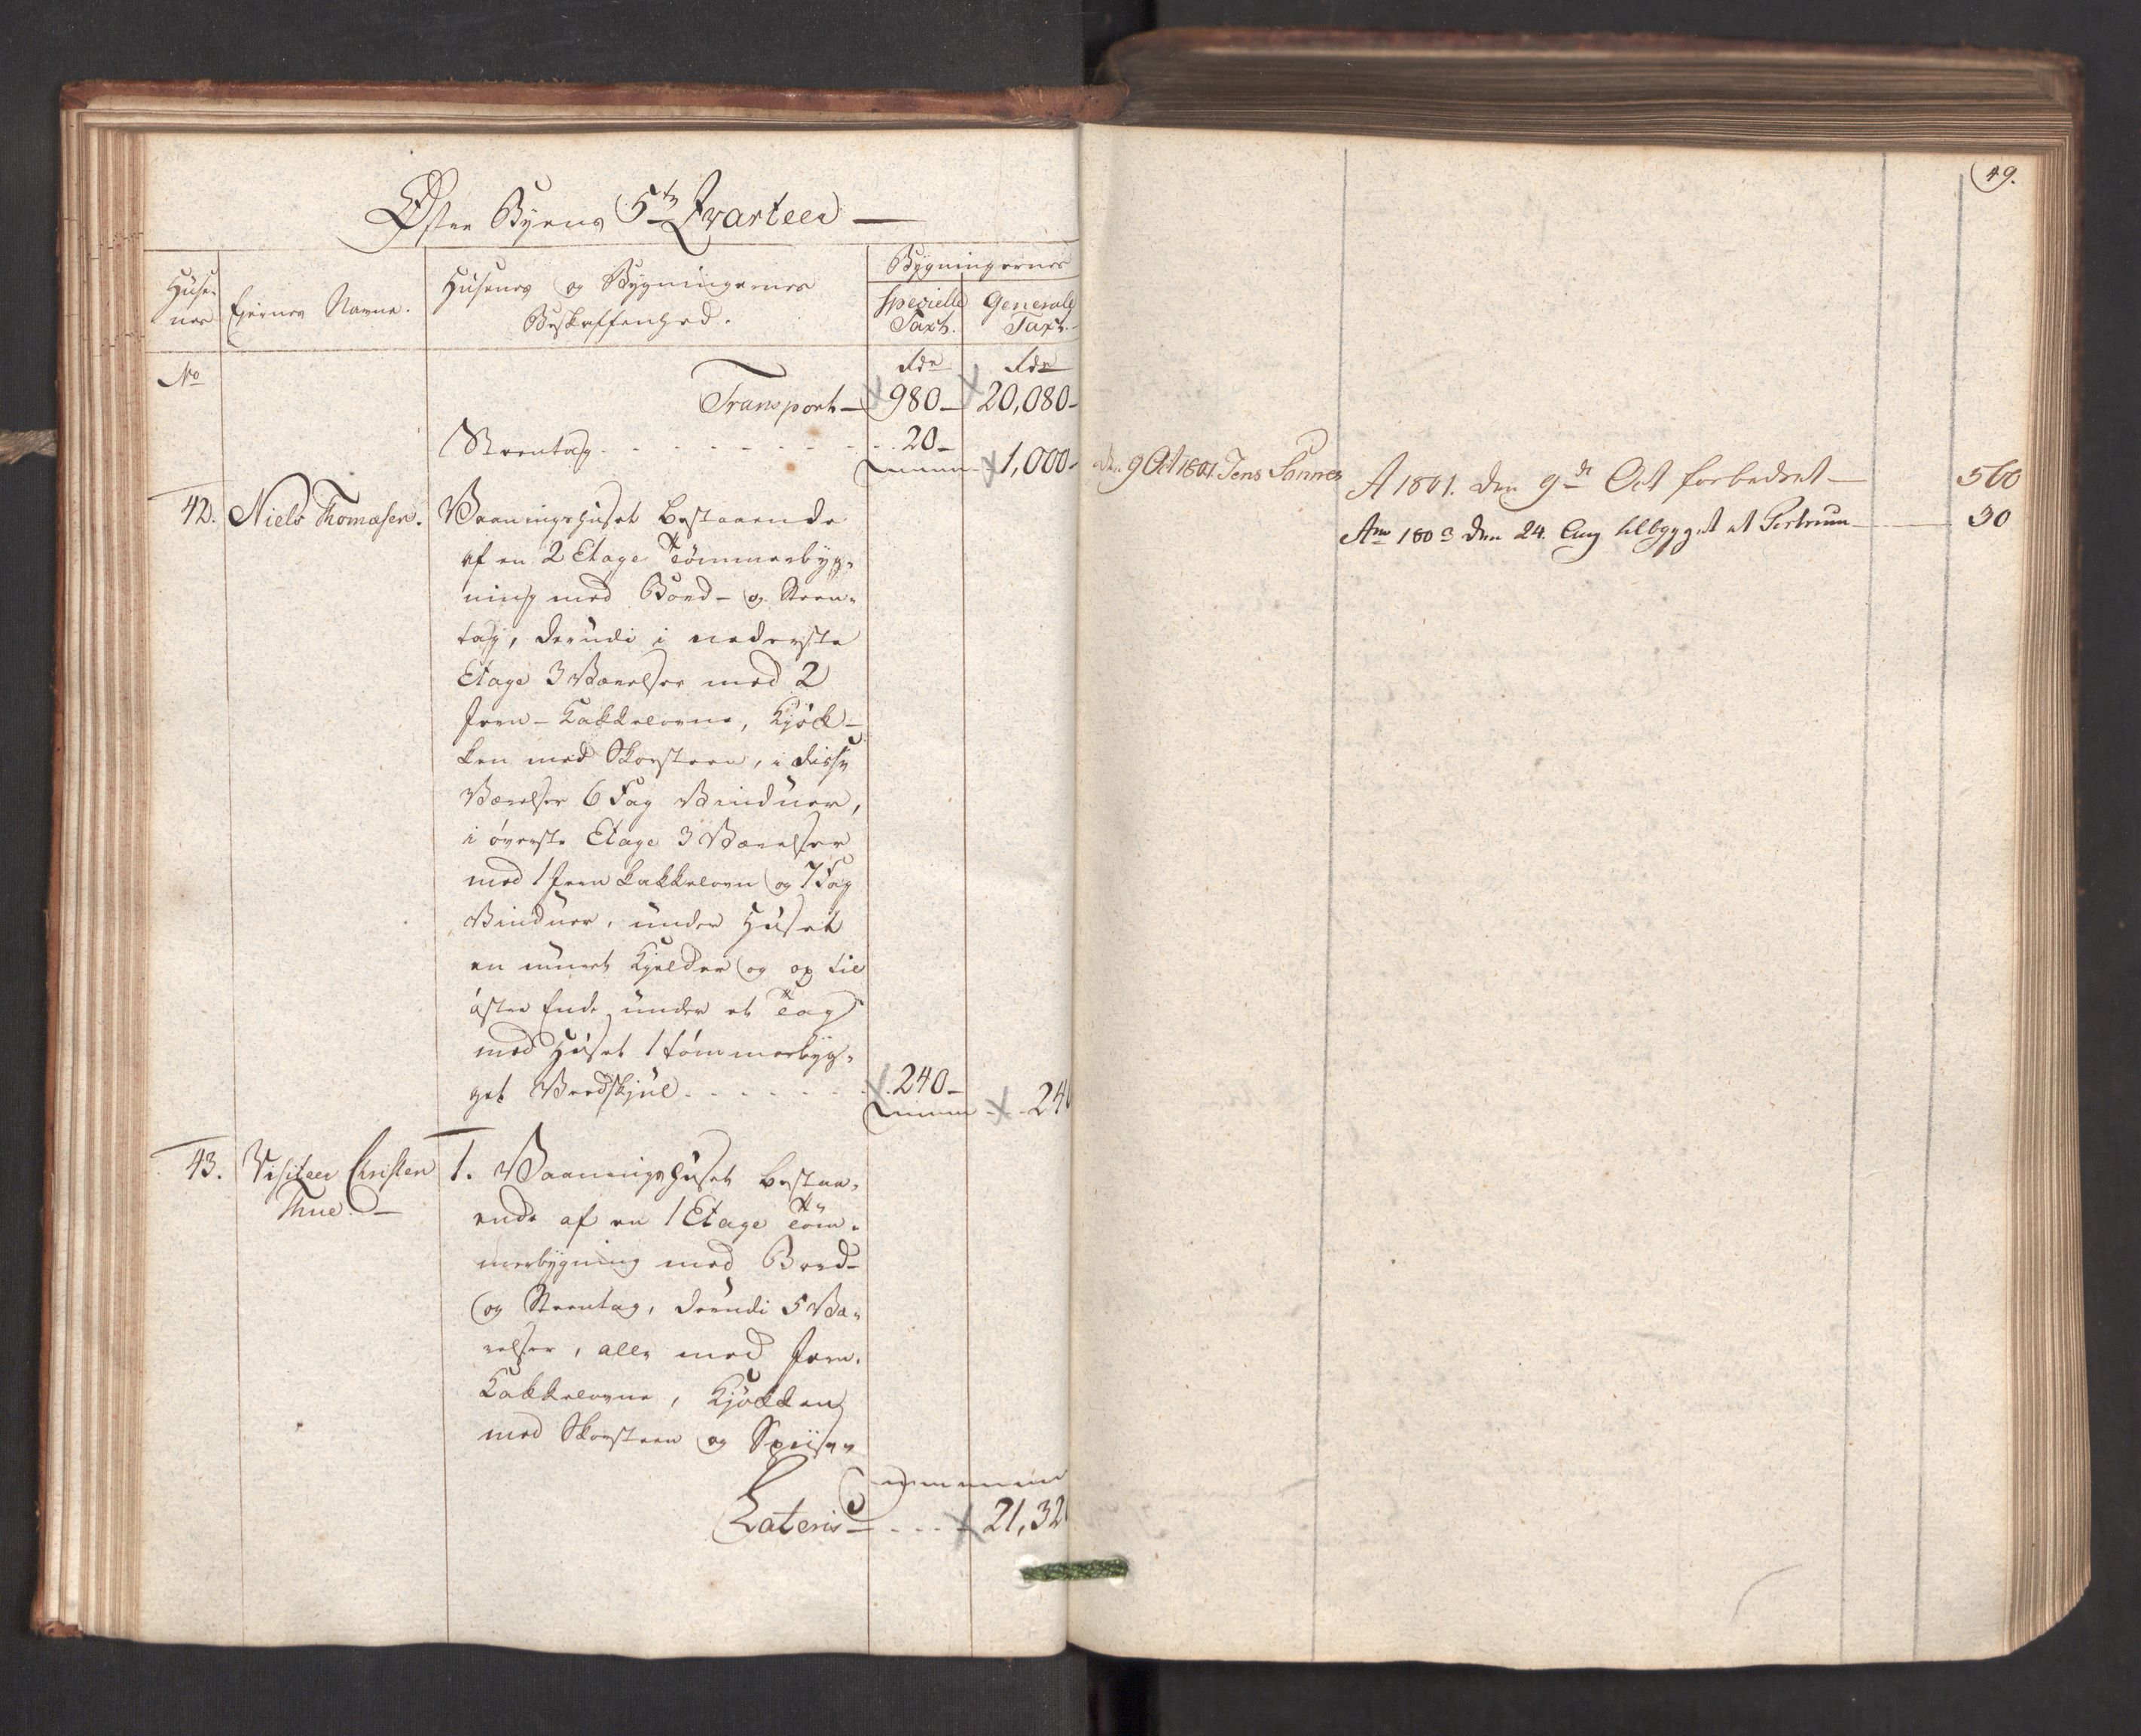 Øster Byens 5te Qvarteer —
Huse-
nes
Ejernes Navne.
Husenes og Bygningernes
Beskaffenhed.
Bygningernes
Specielle
Taxt.
Generale
Taxt.
No
Rdr
Rdr
Transport — 980 — 20,080 -
Steentag. . . . . . . . 20 -
1,000 -
42. Niels Thomasen. Vaaningshuset bestaaende
af en 2 Etage Tømmerbyg-
ning med Bord- og Steen-
tag, derudi i nederste
Etage 3 Værelser med 2
Jern-Kakkelovne, Kjøk-
ken med Skorsteen, i disse
Værelser 6 Fag Vinduer,
i øverste Etage 3 Værelser
med 1 Jern Kakkelovn og 7 Fag
Vinduer, under Huset
en muret Kjelder og op til
øster Ende under et Tag
med Huset 1 tømmerbyg-
get Vedskjul. . . . . . . 240 -
240
43. Visiteer Christen
Thue. —
1. Vaaningshuset bestaa-
ende af en 1 Etage Töm-
merbygning med Bord-
og Steentag, derudi 5 Væ-
relser, alle med Jern-
Kakkelovne, Kjøkken
med Skorsteen og Spiise-
Lateris — . . . 21,320
49.
den 9 Oct 1801. Jens Sannes
A 1801. den 9de Oct forbedret — 560
Ano 1803 den 24. Aug tilbygget et — 30